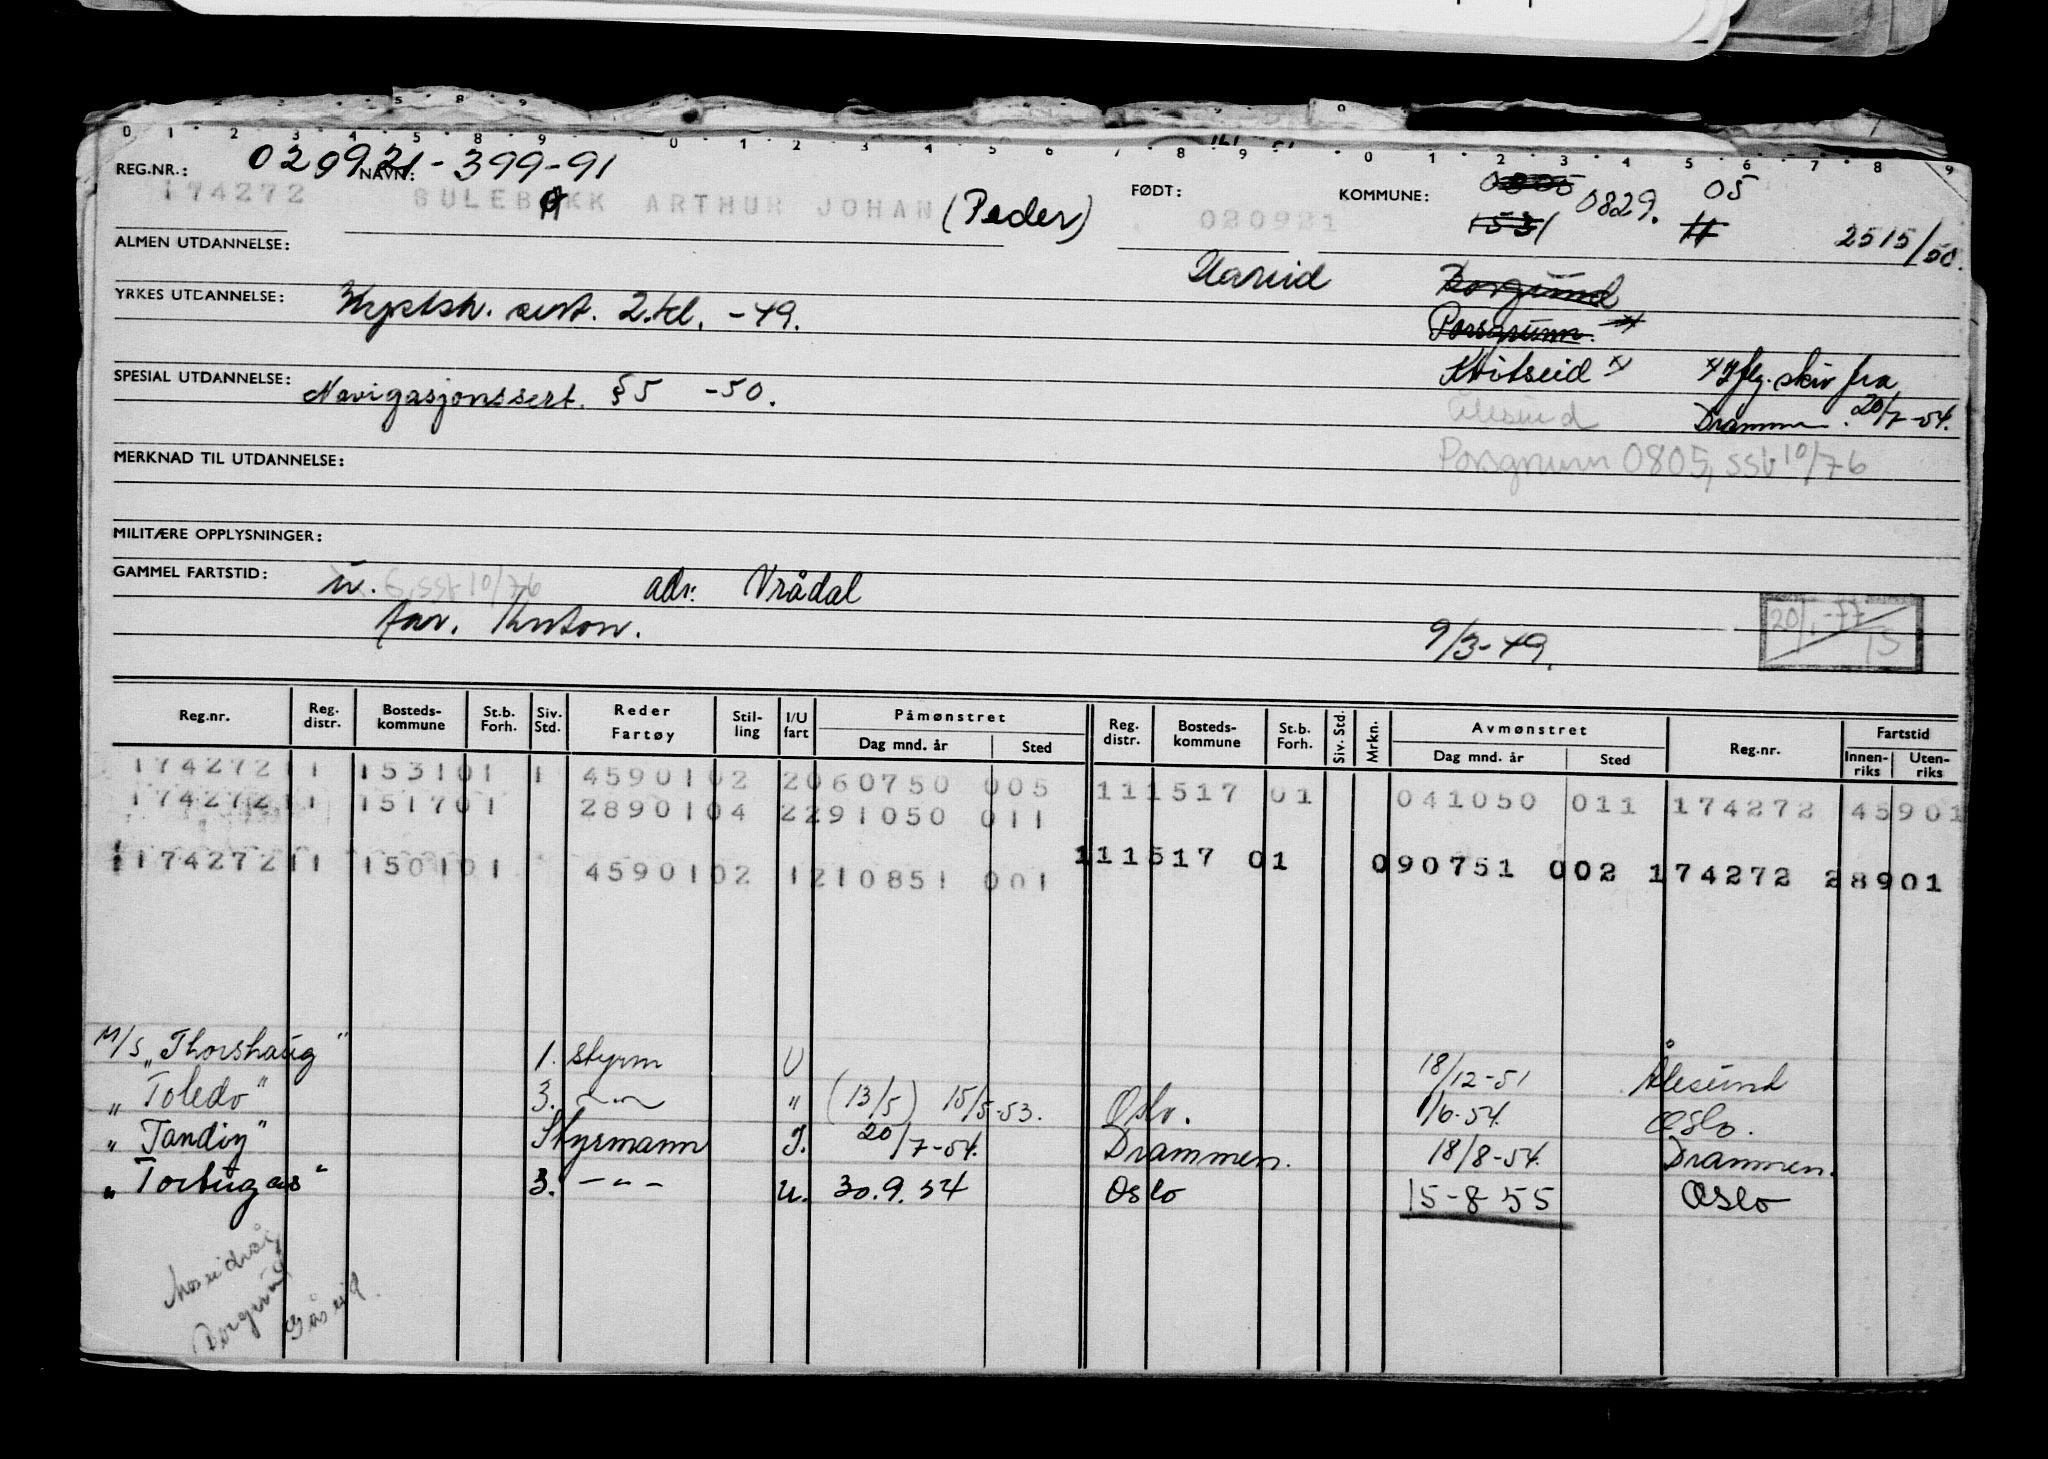 0 1 2 3 4 5 8 9 0 1 2 3 4 5 6 7 8 9 0 1 2 3 4 5 6 7 8 9
REG.NR.: 020921-399-91 NAVN: FØDT: KOMMUNE: 0829. 05
174272 SULEBAKK ARTHUR JOHAN (Peder) 020921 1531 11 2515/50.
ALMEN UTDANNELSE: Hareid Borgund
YRKES UTDANNELSE: Kystsk. sert. 2.kl. -49. Porsgrunn. x
Kvitseid x x Iflg. skiv fra
SPESIAL UTDANNELSE: Navigasjonssert. §5 -50. Ålesund Drammen. 20/7-54.
MERKNAD TIL UTDANNELSE: Porsgrunn 0805, sst 10/76
MILITÆRE OPPLYSNINGER:
GAMMEL FARTSTID: u. sst 10/76 adr. Vrådal 20/1-77
9/3-49. 15
Reg.nr. Reg. distr. Bosteds-kommune St.b. Forh. Siv. Std. Reder Fartøy Stil-ling I/U fart Påmønstret Dag mnd. år Sted Reg. distr. Bosteds-kommune St.b. Forh. Siv. Std. Mrkn. Avmønstret Dag mnd. år Sted Reg.nr. Fartstid Innen-riks Uten-riks
174272 11 1531 01 1 45901 02 2 060750 005 11 1517 01 041050 011 174272 45901
174272 11 1517 01 28901 04 2 291050 011
11 1517 01 090751 002 174272 28901
174272 11 1501 01 45901 02 1 210851 001
M/S "Thorshaug" 1. styrm U 18/12-51 Ålesund
" Toledo" 3. -"- " (13/5) 15/5-53. Oslo. 1/6-54. Oslo.
" Tandiy" Styrmann I. 20/7-54. Drammen. 18/8-54. Drammen.
" Tortugas" 3. -"- u. 30.9.54 Oslo 15-8-55 Oslo
Borgund
Gåseid.